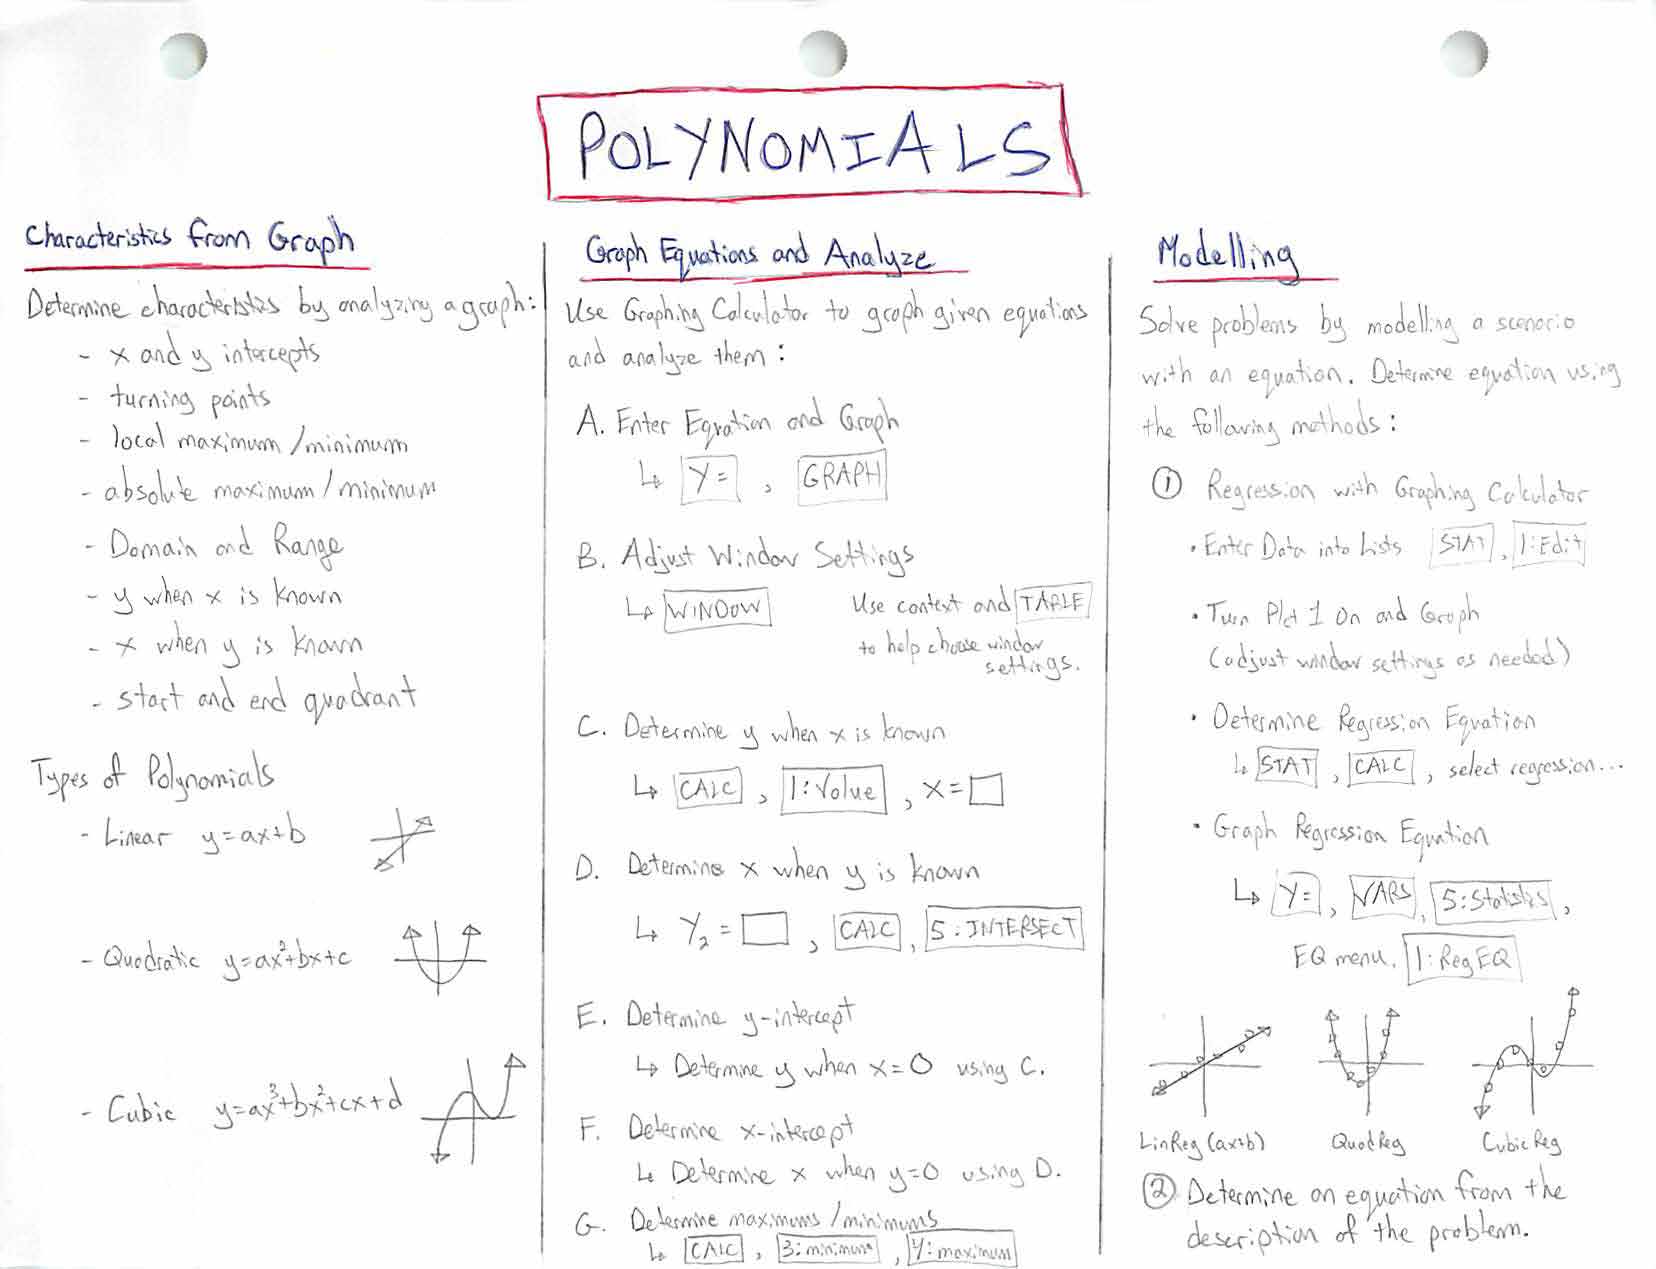 POLYNOMIALS
Characteristics from Graph
Determine characteristics by analyzing a graph:
- x and y intercepts
- turning points
- local maximum/minimum
- absolute maximum/minimum
- Domain and Range
- y when x is known
- x when y is known
- start and end quadrant
Types of Polynomials
- Linear y=ax+b
- Quadratic y=ax²+bx+c
- Cubic y=ax³+bx²+cx+d
Graph Equations and Analyze
Use Graphing Calculator to graph given equations
and analyze them:
A. Enter Equation and Graph
↳ Y= , GRAPH
B. Adjust Window Settings
↳ WINDOW
Use context and TABLE
to help choose window
settings.
C. Determine y when x is known
↳ CALC , 1:Value , x=□
D. Determine x when y is known
↳ Y₂ = □ , CALC , 5:INTERSECT
E. Determine y-intercept
↳ Determine y when x=0 using C.
F. Determine x-intercept
↳ Determine x when y=0 using D.
G. Determine maximums/minimums
↳ CALC , 3:minimum , 4:maximum
Modelling
Solve problems by modelling a scenario
with an equation. Determine equation using
the following methods:
① Regression with Graphing Calculator
• Enter Data into Lists STAT , 1:Edit
• Turn Plot 1 On and Graph
(adjust window settings as needed)
• Determine Regression Equation
↳ STAT , CALC , select regression...
• Graph Regression Equation
↳ Y= , VARS , 5:Statistics ,
EQ menu, 1:RegEQ
LinReg (ax+b) QuadReg CubicReg
② Determine an equation from the
description of the problem.